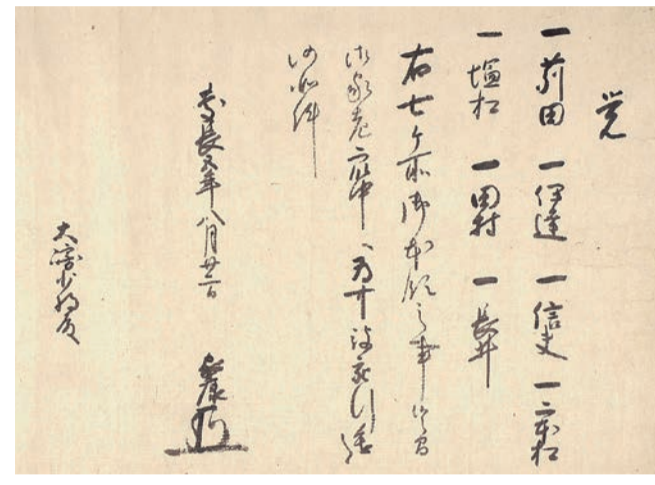 覚
一 苅田 一 伊達 一 信夫 一 二本松
一 塩松 一 田村 一 長井
右七ケ所御本領之事候之間
御家老衆中へ為可被宛行進之候
仍如件
慶長五年八月廿二日 家康
大崎少将殿